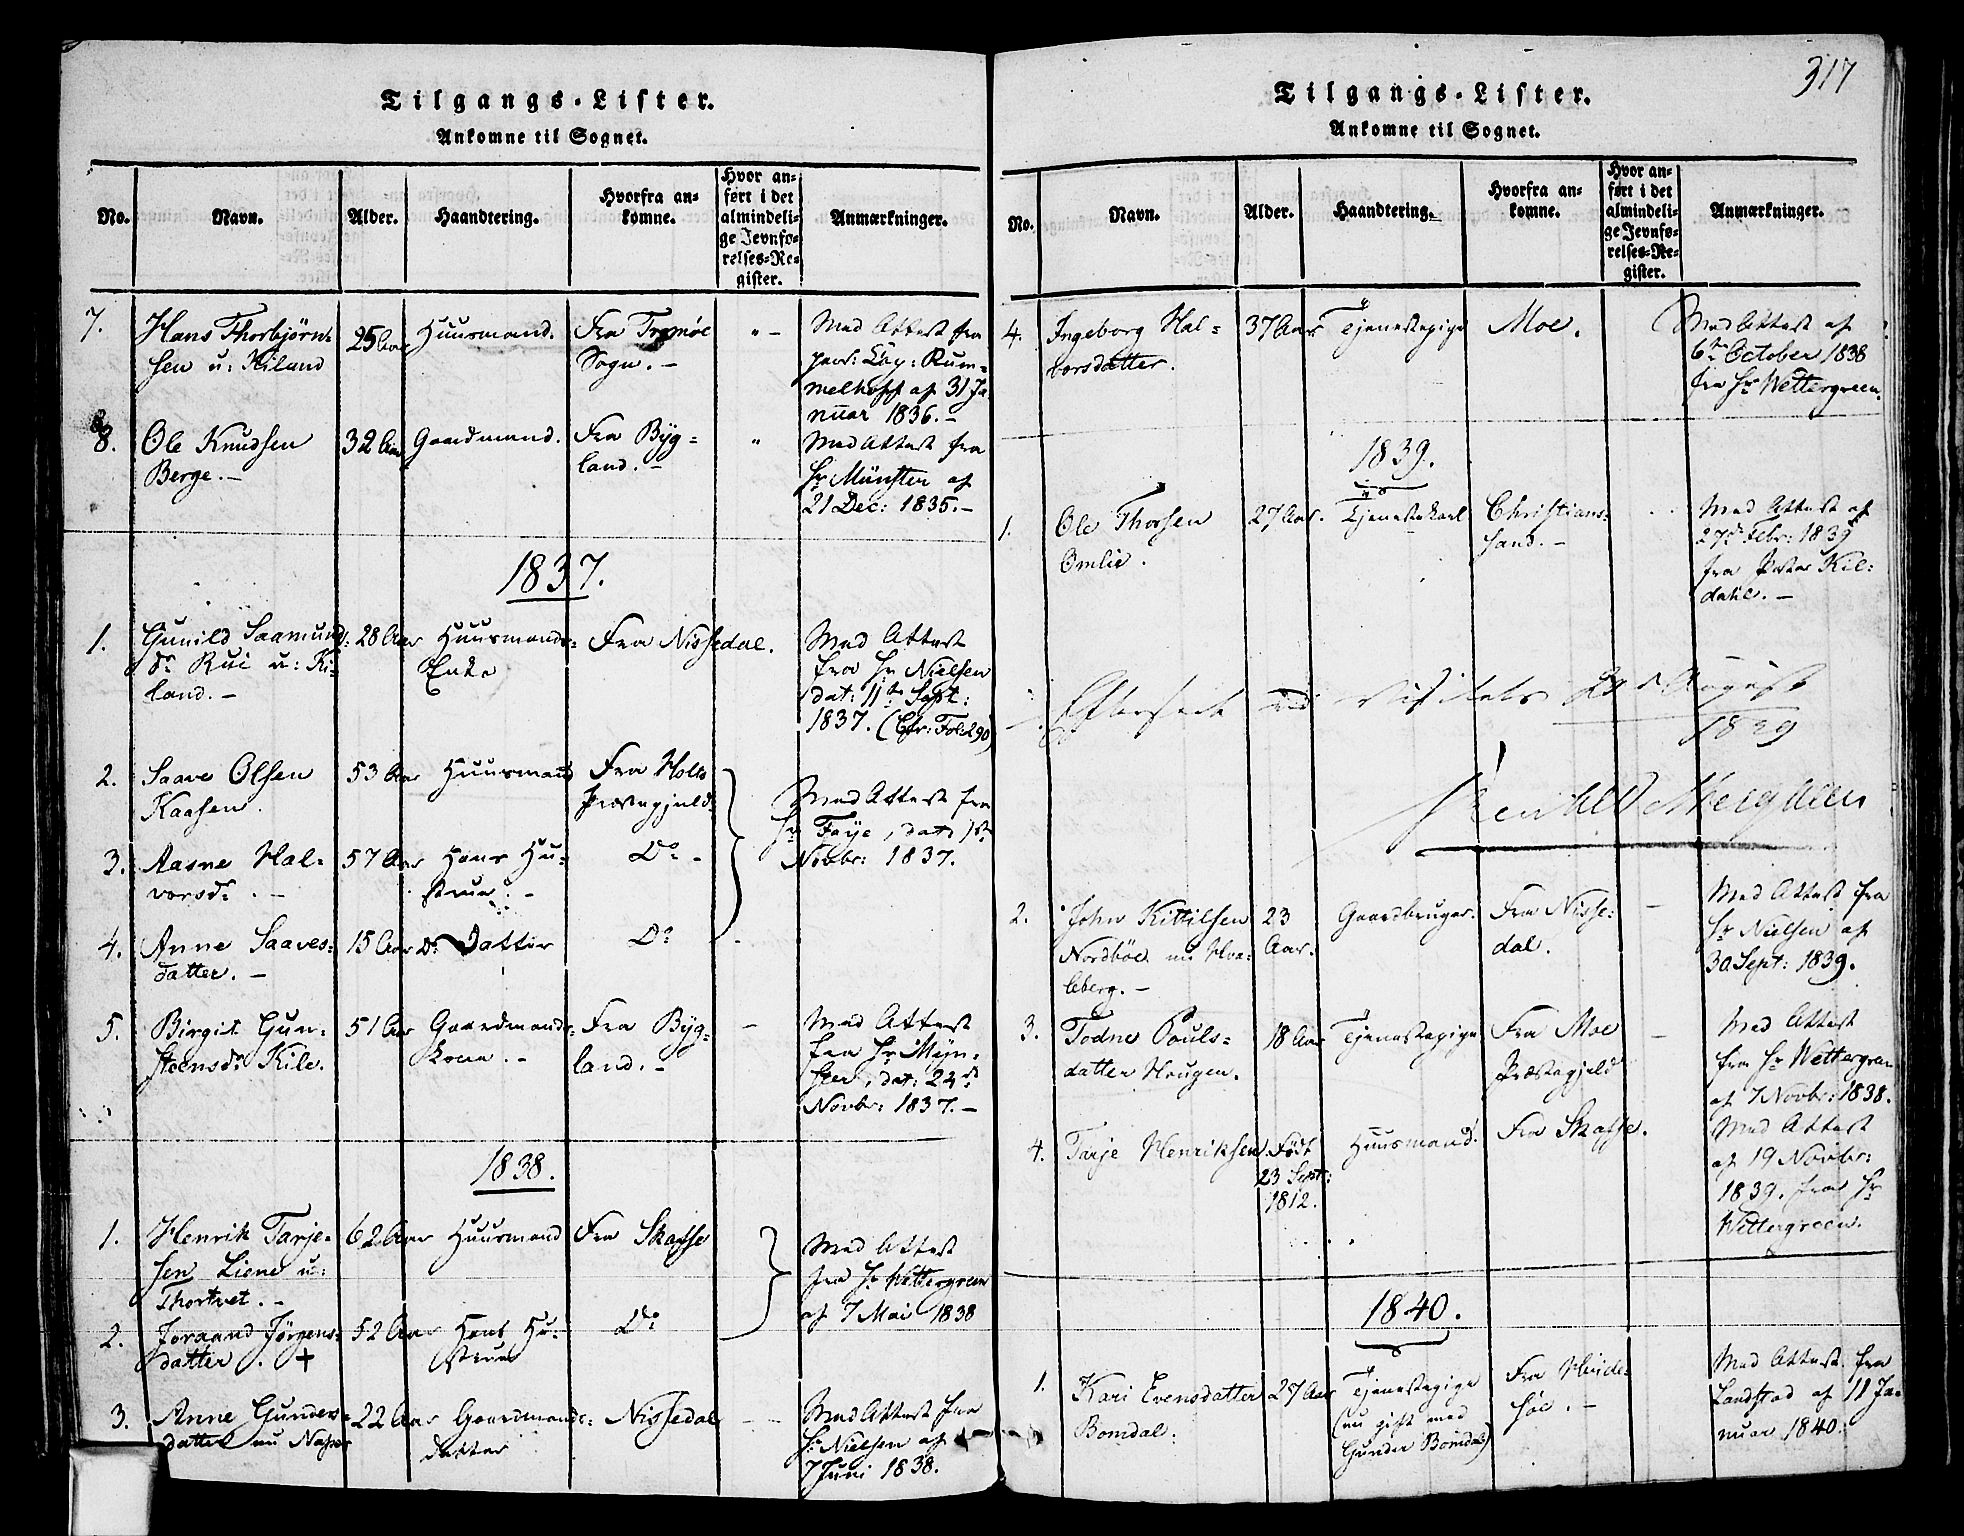 Tilgangs-Lister.
Ankomne til Sognet.
No. Navn. Alder. Haandtering. Hvorfra ankomne. Hvor anført i det almindelige Jevnførelses-Register. Anmærkninger.
7. Hans Thorbjørn- 25 Aar Huusmand. Fra Tromøe " - Med Attest fra
sen u: Kiland Sogn. - pers: Cap: Rum-
melhoff af 31 Ja
nuar 1836. -
8. Ole Knudsen 32 Aar Gaardmand. Fra Byg- " Med Attest fra
Berge. - land. - Hr Münster af
21 Dec: 1835. -
1837.
1. Gunild Saamunds- 28 Aar Huusmands- Fra Nissedal. Med Attest
dr Rui u: Ki- Enke fra Hr Nielsen
land. - dat: 11te Sept:
1837. (Cfr: Fol: 290)
2. Saave Olsen 53 Aar Huusmand Fra Holts Med Attest fra
Kaasen. Præstegjeld. Hr Faye, dat: 1ste
3. Aasne Hal- 57 Aar Hans Hu- Do - Novbr: 1837.
vorsdr. - strue. -
4. Anne Saaves- 15 Aar Ds Datter Do -
datter. -
5. Birgit Gun- 51 Aar Gaardmands- Fra Byg- - Med Attest
steensdr Kile. kone. - land. - fra Hr Myn-
ster, dat: 22de
Novbr: 1837. -
1838.
1. Henrik Tarje- 62 Aar Huusmand Fra Skafse Med Attest
sen Liene u: fra Hr Wettergreen
Thortvet. - af 7 Mai 1838
2. Joraand Jørgens- 52 Aar Hans Hu- Do
datter. + strue
3. Anne Gunders- 22 Aar Gaardmands- Nissedal - Med Attest fra
datter nu Næper Datter Hr Nielsen af
7 Juni 1838.
317
Tilgangs-Lister.
Ankomne til Sognet.
No. Navn. Alder. Haandtering. Hvorfra ankomne. Hvor anført i det almindelige Jevnførelses-Register. Anmærkninger.
4. Ingeborg Hal- 37 Aar Tjenestepige Moe. Med Attest af
vorsdatter. 6te October 1838
fra Hr Wettergreen.
1839.
1. Ole Thorsen 27 Aar. Tjenestekarl Christians- Med Attest af
Omlie. sand. - 27de Febr: 1839
fra Pastor Kil-
dahl. -
Efterseet ved Visitats 29 d. August
1839
2. John Kittilsen 23 Gaardbruger. Fra Nisse- - Med Attest fra
Nordbøe nu Hva- Aar. dal. Hr Nielsen af
leberg. - 30 Sept: 1839.
3. Todne Pouls- 18 Aar Tjenestepige Fra Moe - Med Attest
datter Haugen. Præstegjeld fra Hr Wettergreen
af 7 Novbr: 1838.
4. Tarje Henriksen Født Huusmand. Fra Skafse. Med Attest
23 Sept: af 19 Novbr:
1812. 1839. fra Hr
Wettergreen.
1840.
1. Kari Evensdatter 27 Aar Tjenestepige Fra Hvide- Med Attest fra
Bomdal. (nu gift med søe. - Landstad af 11 Ja-
Gunder Bomdal) nuar 1840.